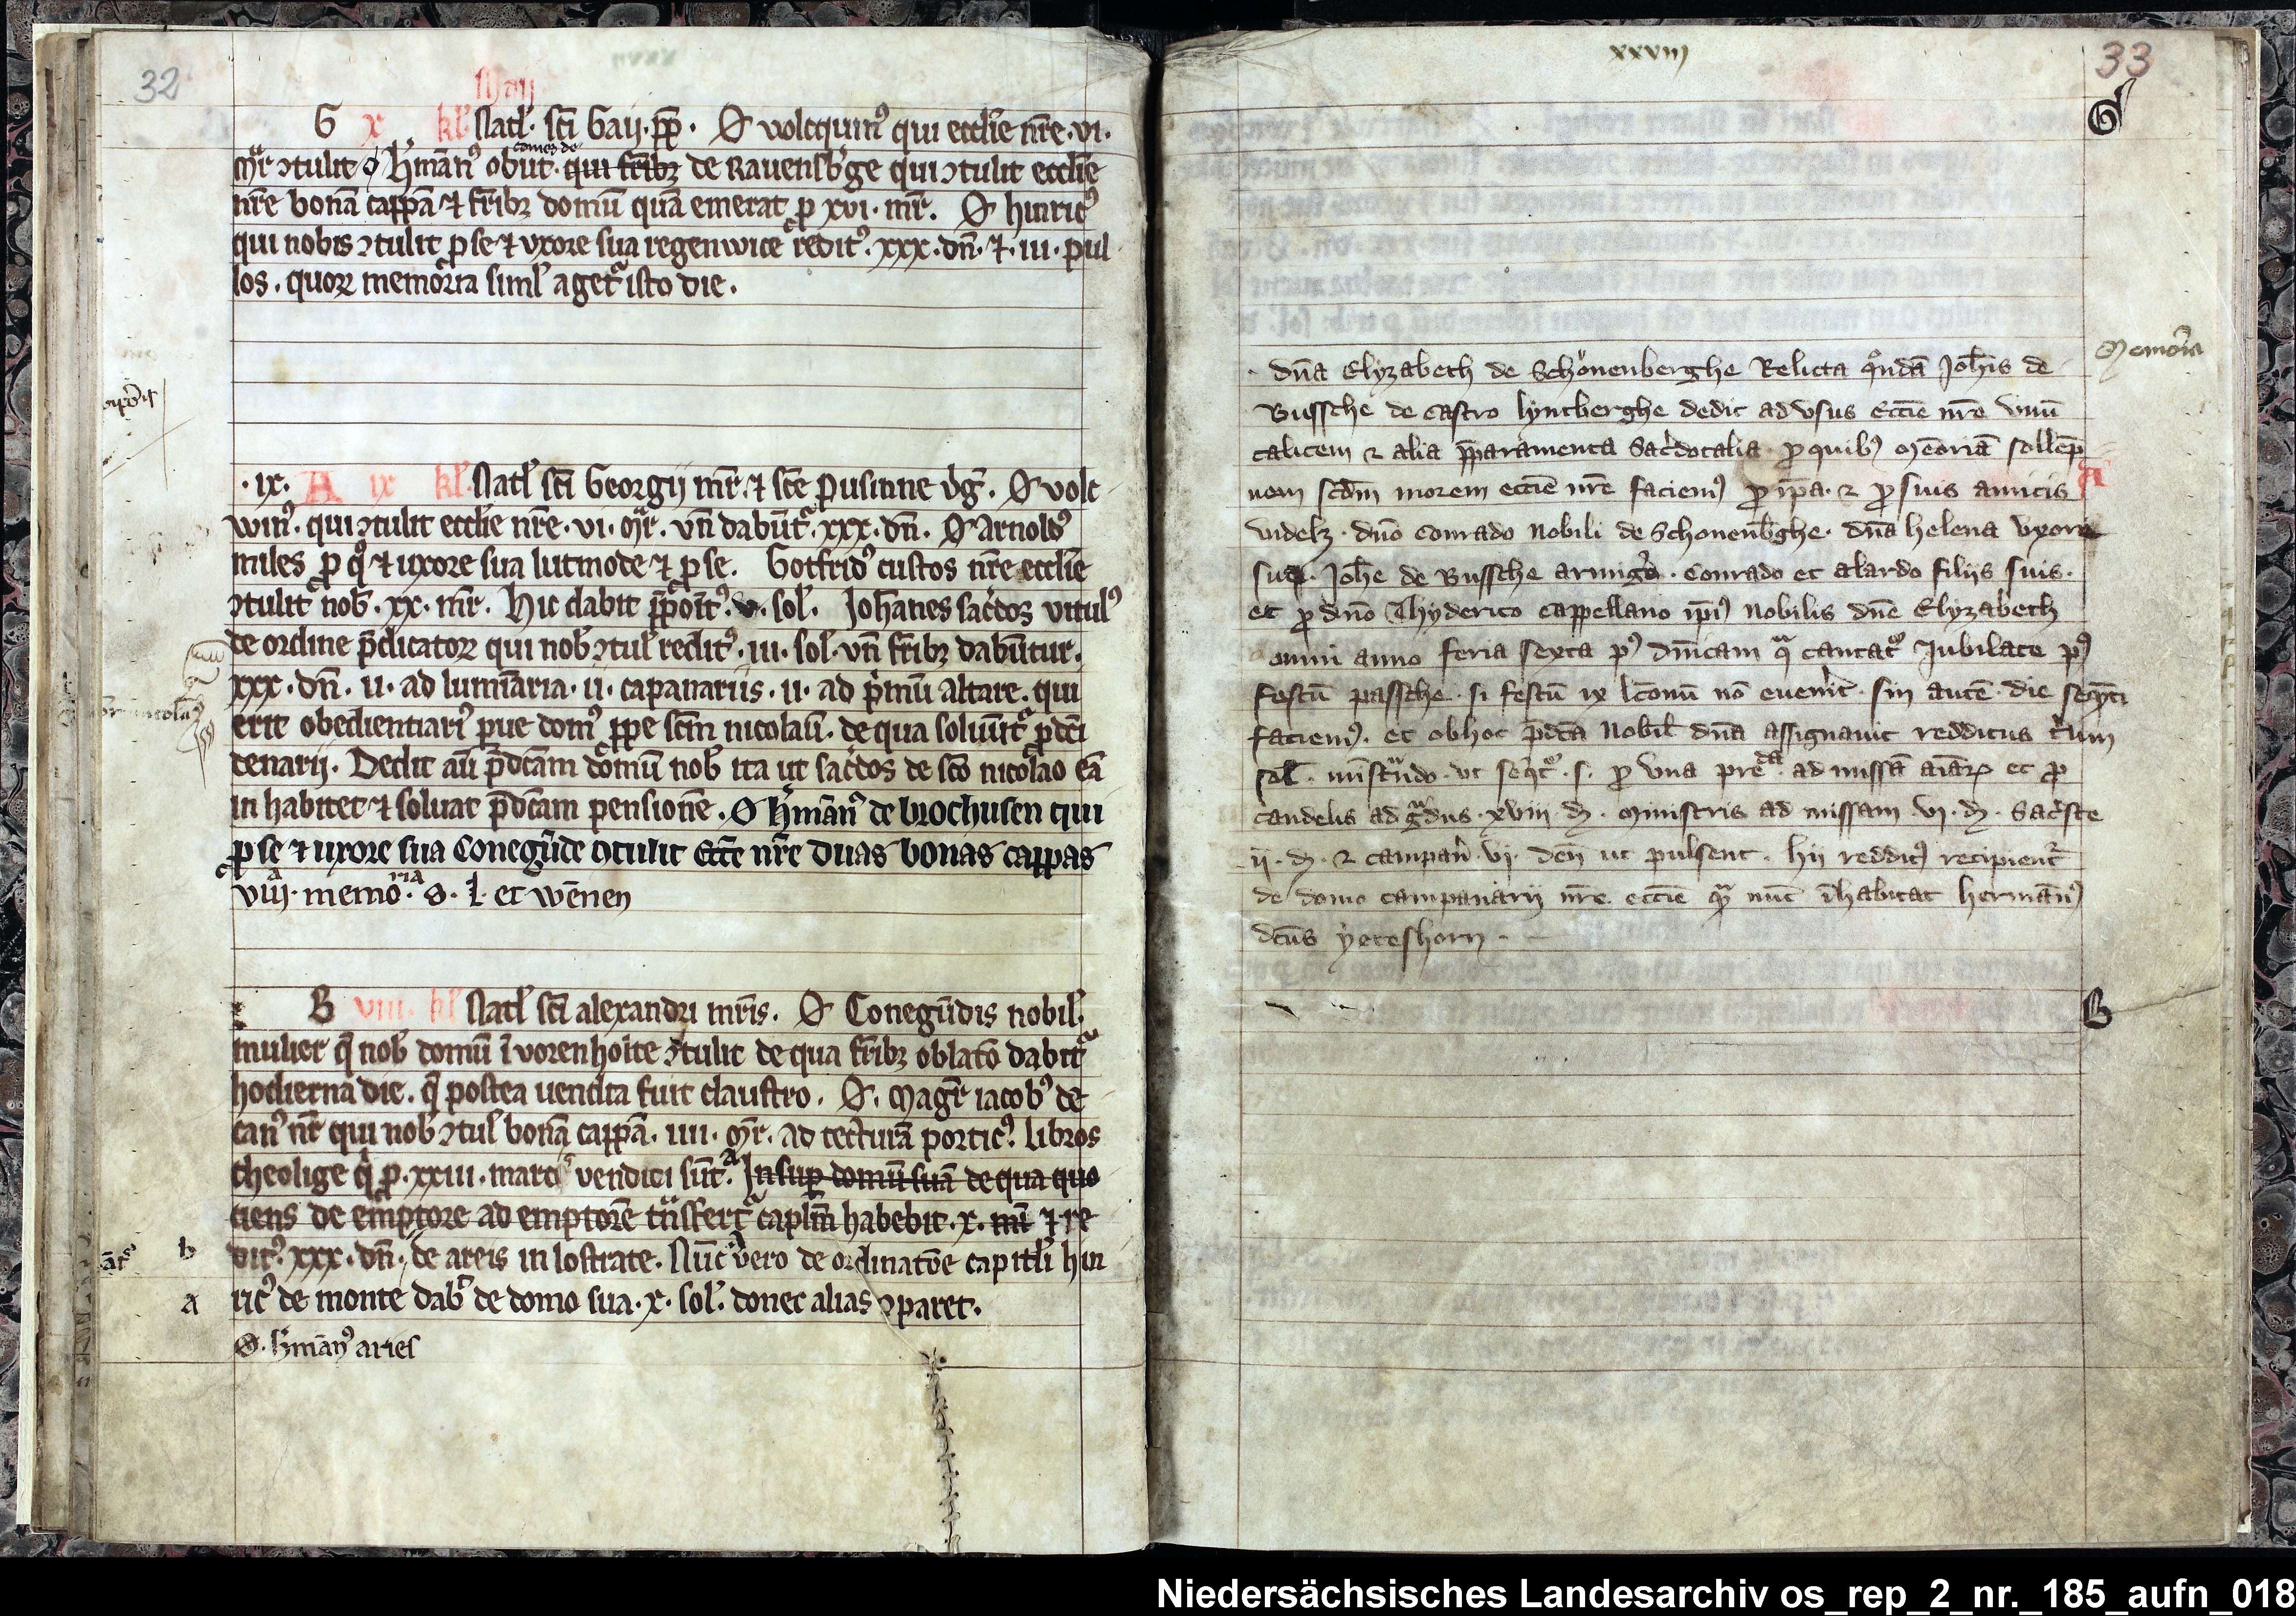 32
Maij
G x kl' Natl'. sci Gaij. pp. O volcquin9 qui ecclie nre. vi.
mr ɔtulit O h'mann9 obiit. comes de qui fribz de Rauensb'ge qui ɔtulit ecclie
nre bonā cappā ⁊ fribz domū quā emerat p xvi. mr. O hinric9
qui nobis ɔtulit p se ⁊ vxore sua regenwice redit9. xxx. dn. ⁊. iii. pul
los. quorz memoria siml' aget' isto die.
. ix. A ix kl'. Natl' sci Georgij mr. ⁊ sce Pusinne v'g'. O volc
win9. qui ɔtulit ecclie nre. vi. mr. vn dabūt'. xxx. dn. O Arnold9
miles p q° ⁊ uxore sua lutmode ⁊ p se. Gotfrid9 custos nre ecclie
ɔtulit nob'. xx. mr. hic dabit ppoit9. v. sol'. Johānes sac'dos vitul9
de ordine p̄dicatorz qui nob' ɔtul' redit9. iii. sol'. vn fribz dabūtur.
xxx. dn. ii. ad lumīaria. ii. capanariis. ii. ad p'mū altare. qui
erit obedientiari9 pue dom9 ppe scm nicolaū. de qua soluūt' p̄dci
denarij. Dedit aū p̄dcam domū nob' ita ut sac'dos de sco nicolao eā
in habitet ⁊ soluat p̄dcam pensionē. O h'mann9 de brochusen qui
p se ⁊ uxore sua Conegūde ɔtulit Ecce nre duas bonas cappas
viij memo. ria s. l. et wēnen
B viii. kl' Natl' sci alexandri mris. O Conegūdis nobil'.
mulier q̄ nob' domū ī vorenholte ɔtulit de qua fribz oblato dabit'
hodierna die. q̄ postea uendita fuit claustro. O. magr iacob9 de
can9 nr qui nob' ɔtul' bonā cappā. iiii. mr. ad tecturā portic9. libros
theolige q̄ p. xxiii. marc vendici sūt. Insup domū suā de qua quo
ciens de emptore ad emptorē tnsfert' caplm habebit. x. mr ⁊ re
dit9. xxx. dn. de areis in lostrate. Nūc vero de ordinatōe capitli hin
b
ric9 de monte dab' de domo sua. x. sol'. donec alias ɔparet.
a
O. h'mān9 aries
xxviij
33
G
Memoria
. dna Elyzabeth de Schönenberghe Relicta qōndā Johis de
Bussche de castro lymberghe dedit ad vsus eccie nre vnū
calicem ⁊ alia pparamenta sac'dotalia. p quib9 memoriā sollēp
nem scdm morem eccie nre faciem9 p ipa. ⁊ p suis amicis
A
videlz. dno Conrado nobili de Schonenb'ghe. dna helena vxore
sua. Johe de Bussche armig'o. Conrado et alardo filijs suis.
et p dno Thyderico cappellano ipi9 nobilis dne Elyzabeth
omni anno feria sexta p9 dnicam q̄ cantat' Jubilate p9
festū passche. si festū ix lconū nō euenit. sin autē. die seqnti
faciem9. et ob hoc p̄dca nobil' dna assignauit redditus t'um
sol'. ministrando. vt seqt'. s. p vna preda ad missā aīarz et p
candelis ad gradus. xviij d. ministris ad missam. vi. d. Sac'ste
ij. d. ⁊ campan' vj. den ut pulsent. hij reddit9 recipient'
de domo campanarij nre eccie q̄ nūc īhabitat hermān9
dcus yereshorn.
B
Niedersächsisches Landesarchiv os_rep_2_nr._185_aufn_018